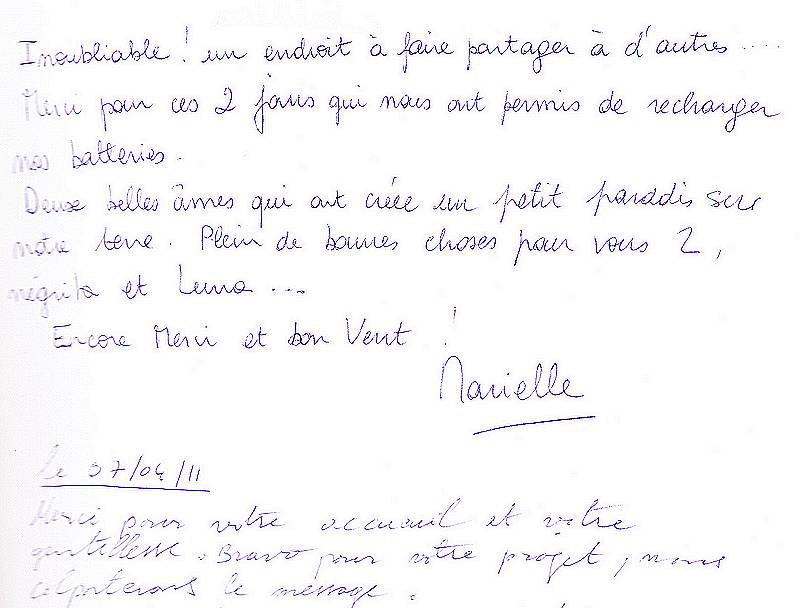 Inoubliable ! un endroit à faire partager à d'autres ....
Merci pour ces 2 jours qui nous ont permis de recharger
nos batteries.
Deux belles âmes qui ont créée un petit paradis sur
notre terre. Plein de bonnes choses pour vous 2,
négrita et Luna ...
Encore Merci et bon Vent !
Marielle
le 07/04/11
Merci pour votre accueil et votre
gentillesse. Bravo pour votre projet, nous
colporterons le message.